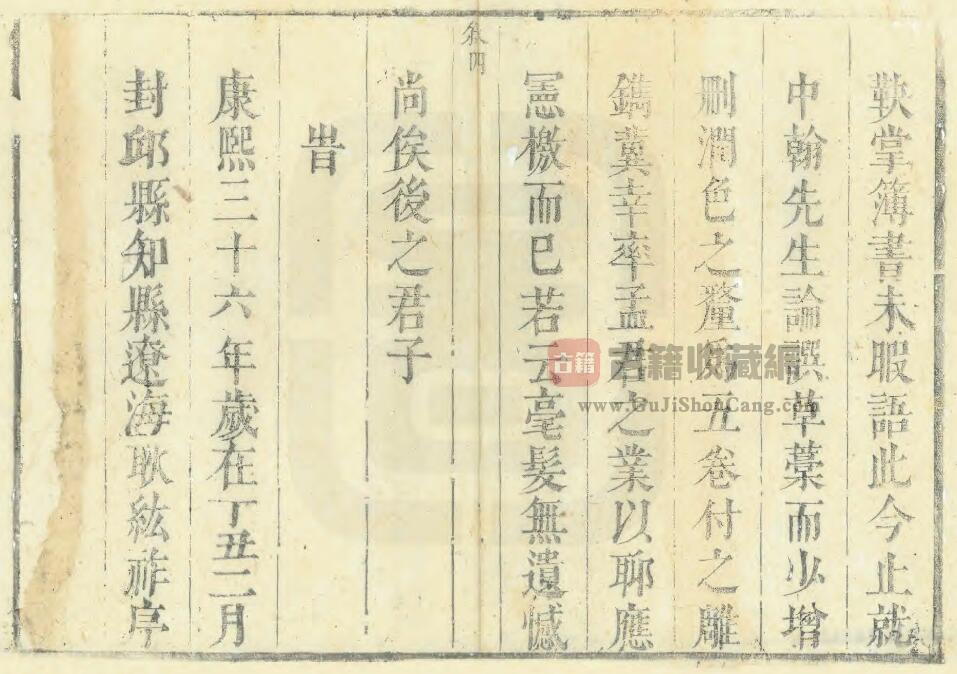 鞅掌簿書未暇語此今止就
中翰先生論譔草藁而少增
刪潤色之釐爲五卷付之離
鐫冀幸率孟君之業以聊應
憲檄而已若云毫髮無遺憾
叙四
尚俟後之君子
旹
康熙三十六年歲在丁丑二月
封邱縣知縣遼海耿紘祚序
古籍
古籍收藏網
www.GuJiShouCang.com